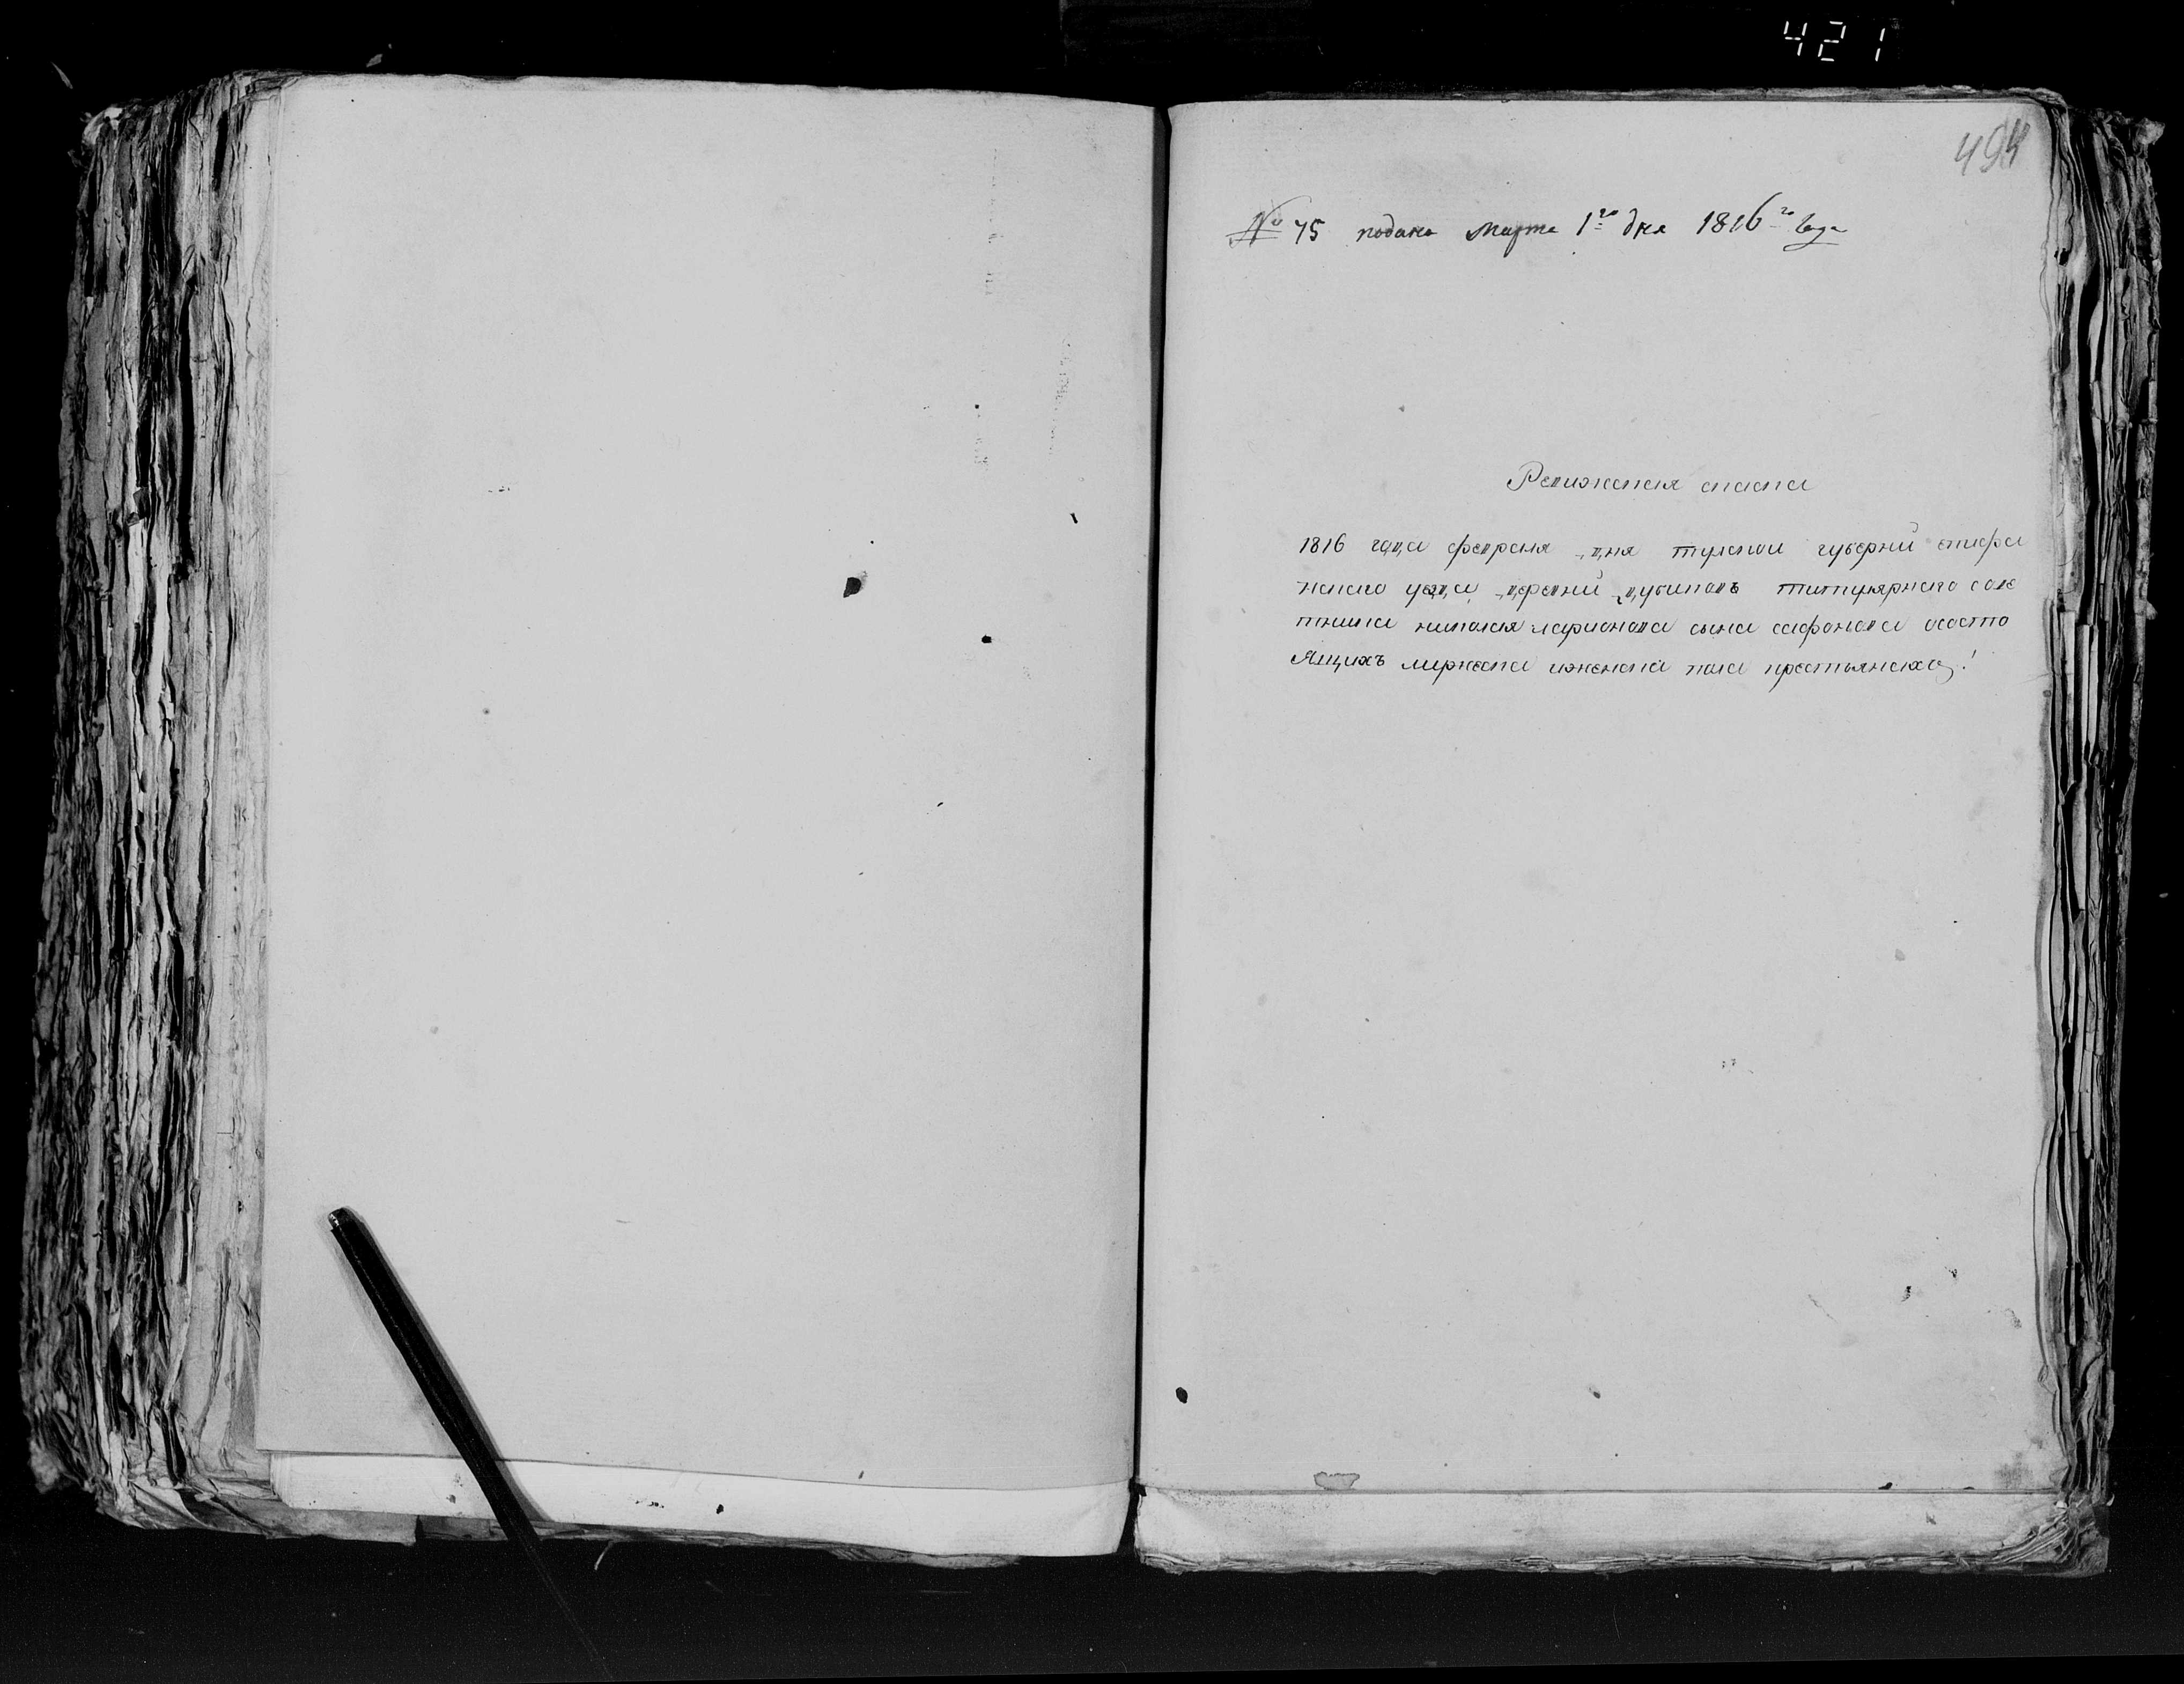 421
494
№ 75 подана марта 1го дня 1816го года
Ревижская скаска
1816 года февраля дня тулской губернии епифа
нскаго уезда деревни дубиковъ титулярнаго сове
тника николая ларионова сына сафонова осостоо
Ящихъ мужеска иженска пола крестьянехъ